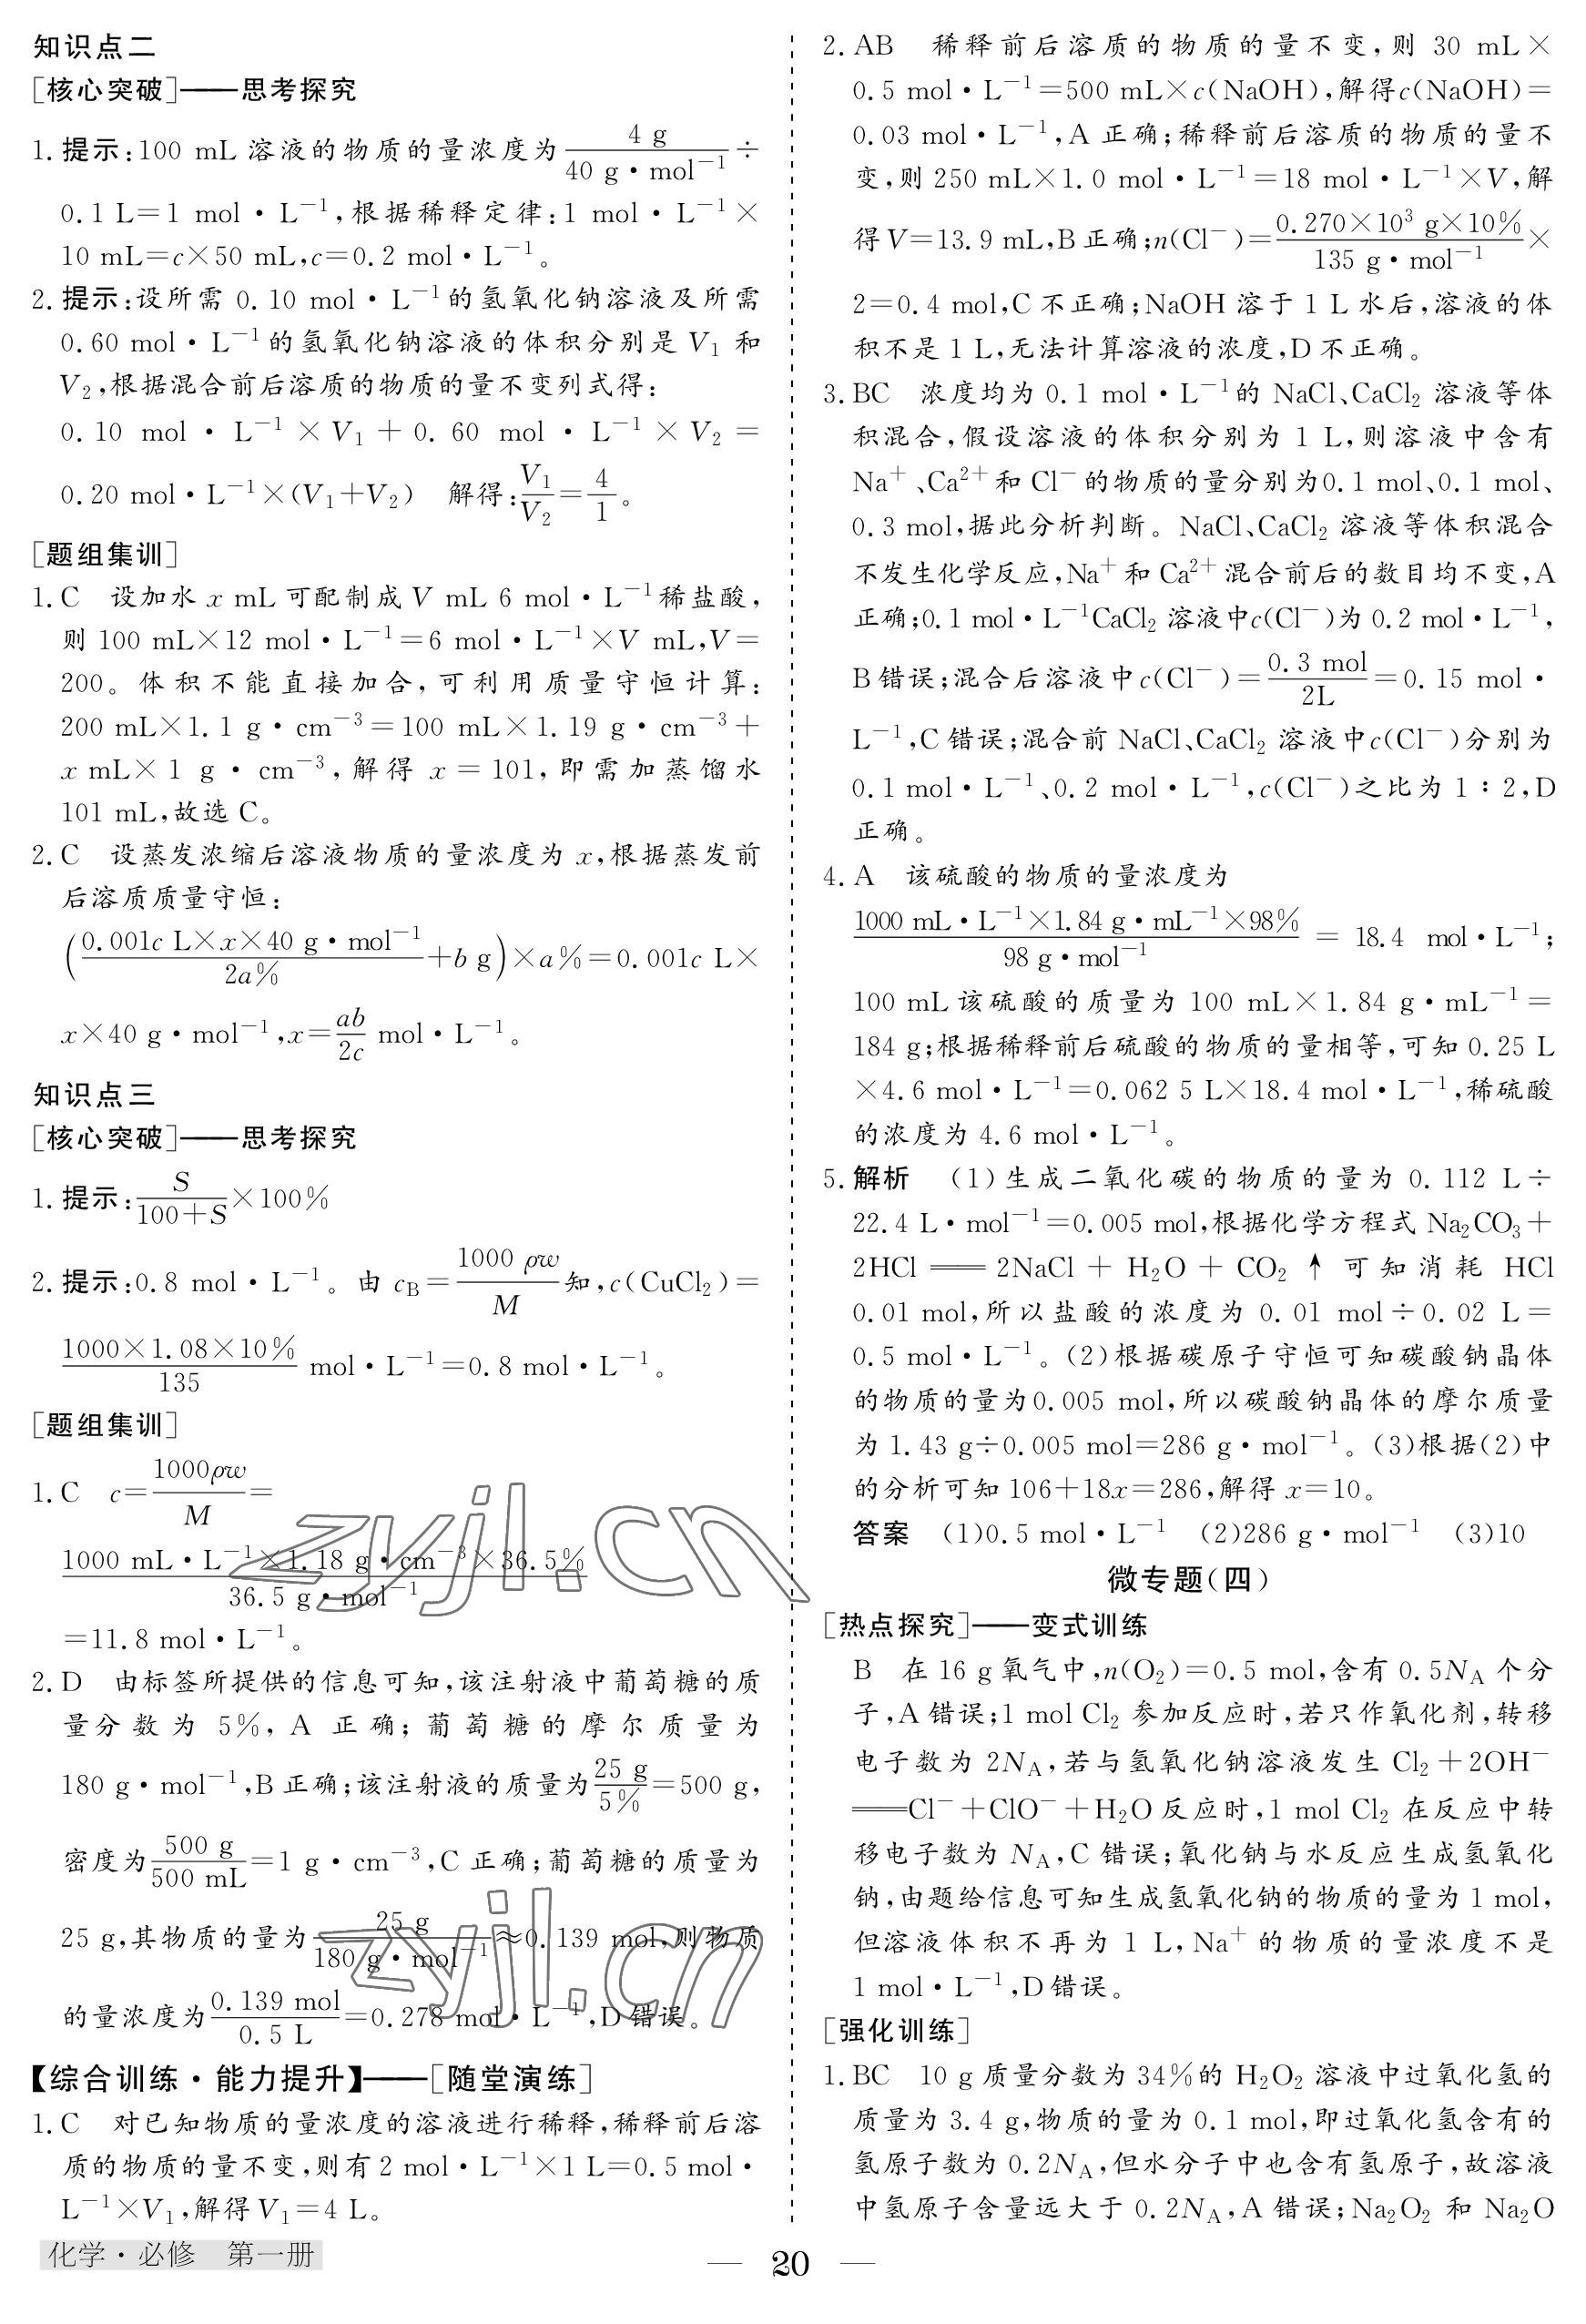 知识点二
[核心突破]——思考探究
1. 提示:100 mL 溶液的物质的量浓度为 4 g / 40 g·mol⁻¹ ÷
0.1 L=1 mol·L⁻¹,根据稀释定律:1 mol·L⁻¹×
10 mL=c×50 mL,c=0.2 mol·L⁻¹。
2. 提示:设所需 0.10 mol·L⁻¹的氢氧化钠溶液及所需
0.60 mol·L⁻¹的氢氧化钠溶液的体积分别是 V₁ 和
V₂,根据混合前后溶质的物质的量不变列式得:
0.10 mol·L⁻¹×V₁+0.60 mol·L⁻¹×V₂=
0.20 mol·L⁻¹×(V₁+V₂) 解得:V₁/V₂=4/1。
[题组集训]
1. C 设加水 x mL 可配制成 V mL 6 mol·L⁻¹稀盐酸,
则 100 mL×12 mol·L⁻¹=6 mol·L⁻¹×V mL,V=
200。体积不能直接加合,可利用质量守恒计算:
200 mL×1.1 g·cm⁻³=100 mL×1.19 g·cm⁻³+
x mL×1 g·cm⁻³,解得 x=101,即需加蒸馏水
101 mL,故选 C。
2. C 设蒸发浓缩后溶液物质的量浓度为 x,根据蒸发前
后溶质质量守恒:
(0.001c L×x×40 g·mol⁻¹ / 2a% +b g)×a%=0.001c L×
x×40 g·mol⁻¹,x=ab/2c mol·L⁻¹。
知识点三
[核心突破]——思考探究
1. 提示:S/(100+S)×100%
2. 提示:0.8 mol·L⁻¹。由 c_B=1000 ρw / M 知,c(CuCl₂)=
1000×1.08×10% / 135 mol·L⁻¹=0.8 mol·L⁻¹。
[题组集训]
1. C c=1000ρw / M =
1000 mL·L⁻¹×1.18 g·cm⁻³×36.5% / 36.5 g·mol⁻¹
=11.8 mol·L⁻¹。
2. D 由标签所提供的信息可知,该注射液中葡萄糖的质
量分数为 5%,A 正确;葡萄糖的摩尔质量为
180 g·mol⁻¹,B 正确;该注射液的质量为 25 g / 5% =500 g,
密度为 500 g / 500 mL =1 g·cm⁻³,C 正确;葡萄糖的质量为
25 g,其物质的量为 25 g / 180 g·mol⁻¹ ≈0.139 mol,则物质
的量浓度为 0.139 mol / 0.5 L =0.278 mol·L⁻¹,D 错误。
【综合训练·能力提升】——[随堂演练]
1. C 对已知物质的量浓度的溶液进行稀释,稀释前后溶
质的物质的量不变,则有 2 mol·L⁻¹×1 L=0.5 mol·
L⁻¹×V₁,解得 V₁=4 L。
2. AB 稀释前后溶质的物质的量不变,则 30 mL×
0.5 mol·L⁻¹=500 mL×c(NaOH),解得c(NaOH)=
0.03 mol·L⁻¹,A 正确;稀释前后溶质的物质的量不
变,则 250 mL×1.0 mol·L⁻¹=18 mol·L⁻¹×V,解
得 V=13.9 mL,B 正确;n(Cl⁻)=0.270×10³ g×10% / 135 g·mol⁻¹ ×
2=0.4 mol,C 不正确;NaOH 溶于 1 L 水后,溶液的体
积不是 1 L,无法计算溶液的浓度,D 不正确。
3. BC 浓度均为 0.1 mol·L⁻¹的 NaCl、CaCl₂ 溶液等体
积混合,假设溶液的体积分别为 1 L,则溶液中含有
Na⁺、Ca²⁺和 Cl⁻的物质的量分别为0.1 mol、0.1 mol、
0.3 mol,据此分析判断。NaCl、CaCl₂ 溶液等体积混合
不发生化学反应,Na⁺和 Ca²⁺混合前后的数目均不变,A
正确;0.1 mol·L⁻¹CaCl₂ 溶液中c(Cl⁻)为 0.2 mol·L⁻¹,
B 错误;混合后溶液中 c(Cl⁻)=0.3 mol / 2L =0.15 mol·
L⁻¹,C 错误;混合前 NaCl、CaCl₂ 溶液中c(Cl⁻)分别为
0.1 mol·L⁻¹、0.2 mol·L⁻¹,c(Cl⁻)之比为 1∶2,D
正确。
4. A 该硫酸的物质的量浓度为
1000 mL·L⁻¹×1.84 g·mL⁻¹×98% / 98 g·mol⁻¹ = 18.4 mol·L⁻¹;
100 mL 该硫酸的质量为 100 mL×1.84 g·mL⁻¹=
184 g;根据稀释前后硫酸的物质的量相等,可知 0.25 L
×4.6 mol·L⁻¹=0.062 5 L×18.4 mol·L⁻¹,稀硫酸
的浓度为 4.6 mol·L⁻¹。
5. 解析 (1)生成二氧化碳的物质的量为 0.112 L÷
22.4 L·mol⁻¹=0.005 mol,根据化学方程式 Na₂CO₃+
2HCl══2NaCl+H₂O+CO₂↑可知消耗 HCl
0.01 mol,所以盐酸的浓度为 0.01 mol÷0.02 L=
0.5 mol·L⁻¹。(2)根据碳原子守恒可知碳酸钠晶体
的物质的量为0.005 mol,所以碳酸钠晶体的摩尔质量
为 1.43 g÷0.005 mol=286 g·mol⁻¹。(3)根据(2)中
的分析可知 106+18x=286,解得 x=10。
答案 (1)0.5 mol·L⁻¹ (2)286 g·mol⁻¹ (3)10
微专题(四)
[热点探究]——变式训练
B 在 16 g 氧气中,n(O₂)=0.5 mol,含有 0.5N_A 个分
子,A 错误;1 mol Cl₂ 参加反应时,若只作氧化剂,转移
电子数为 2N_A,若与氢氧化钠溶液发生 Cl₂+2OH⁻
══Cl⁻+ClO⁻+H₂O 反应时,1 mol Cl₂ 在反应中转
移电子数为 N_A,C 错误;氧化钠与水反应生成氢氧化
钠,由题给信息可知生成氢氧化钠的物质的量为 1 mol,
但溶液体积不再为 1 L,Na⁺的物质的量浓度不是
1 mol·L⁻¹,D 错误。
[强化训练]
1. BC 10 g 质量分数为 34%的 H₂O₂ 溶液中过氧化氢的
质量为 3.4 g,物质的量为 0.1 mol,即过氧化氢含有的
氢原子数为 0.2N_A,但水分子中也含有氢原子,故溶液
中氢原子含量远大于 0.2N_A,A 错误;Na₂O₂ 和 Na₂O
化学·必修 第一册
— 20 —
zyjl.cn
zyjl.cn